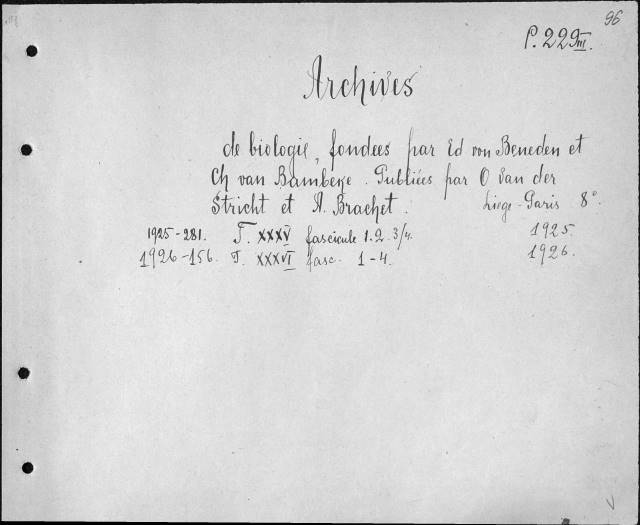 96
P. 229 III.
Archives
de biologie, fondees par Ed von Beneden et
Ch van Bambeke. Publiées par O van der
Stricht et A. Brachet. Liege-Paris 8°.
1925-281. T. XXXV fascicule 1. 2. 3/4. 1925
1926-156. T. XXXVI fasc. 1-4. 1926.